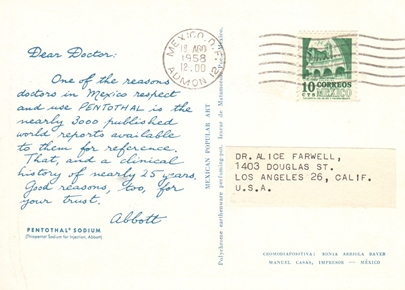 Dear Doctor:
One of the reasons
doctors in Mexico respect
and use PENTOTHAL is the
nearly 3000 published
world reports available
to them for reference.
That, and a clinical
history of nearly 25 years.
Good reasons, too, for
your trust.
Abbott
PENTOTHAL® SODIUM
(Thiopental Sodium for Injection, Abbott)
MEXICAN POPULAR ART
Polychrome earthenware perfuming-pot. Izucar de Matamoros,
MEXICO, D.F.
1958
12.00
ADMON 12
10
CTS
CORREOS
MEXICO
DR. ALICE FARWELL,
1403 DOUGLAS ST.
LOS ANGELES 26, CALIF.
U.S.A.
MANUEL CASAS, IMPRESOR — MÉXICO